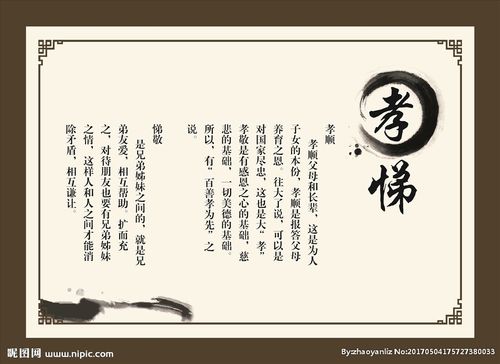 孝悌
孝顺
孝顺父母和长辈，这是为人
子女的本份，孝顺是报答父母
养育之恩。往大了说，可以是
对国家尽忠，这也是大“孝”
孝敬是有感恩之心的基础，慈
悲的基础，一切美德的基础。
所以，有“百善孝为先”之
说。
悌敬
是兄弟姊妹之间的，就是兄
弟友爱，相互帮助。扩而充
之，对待朋友也要有兄弟姊妹
之情，这样人和人之间才能消
除矛盾，相互谦让。
昵图网 www.nipic.com
By:zhaoyanliz No:20170504175727380033